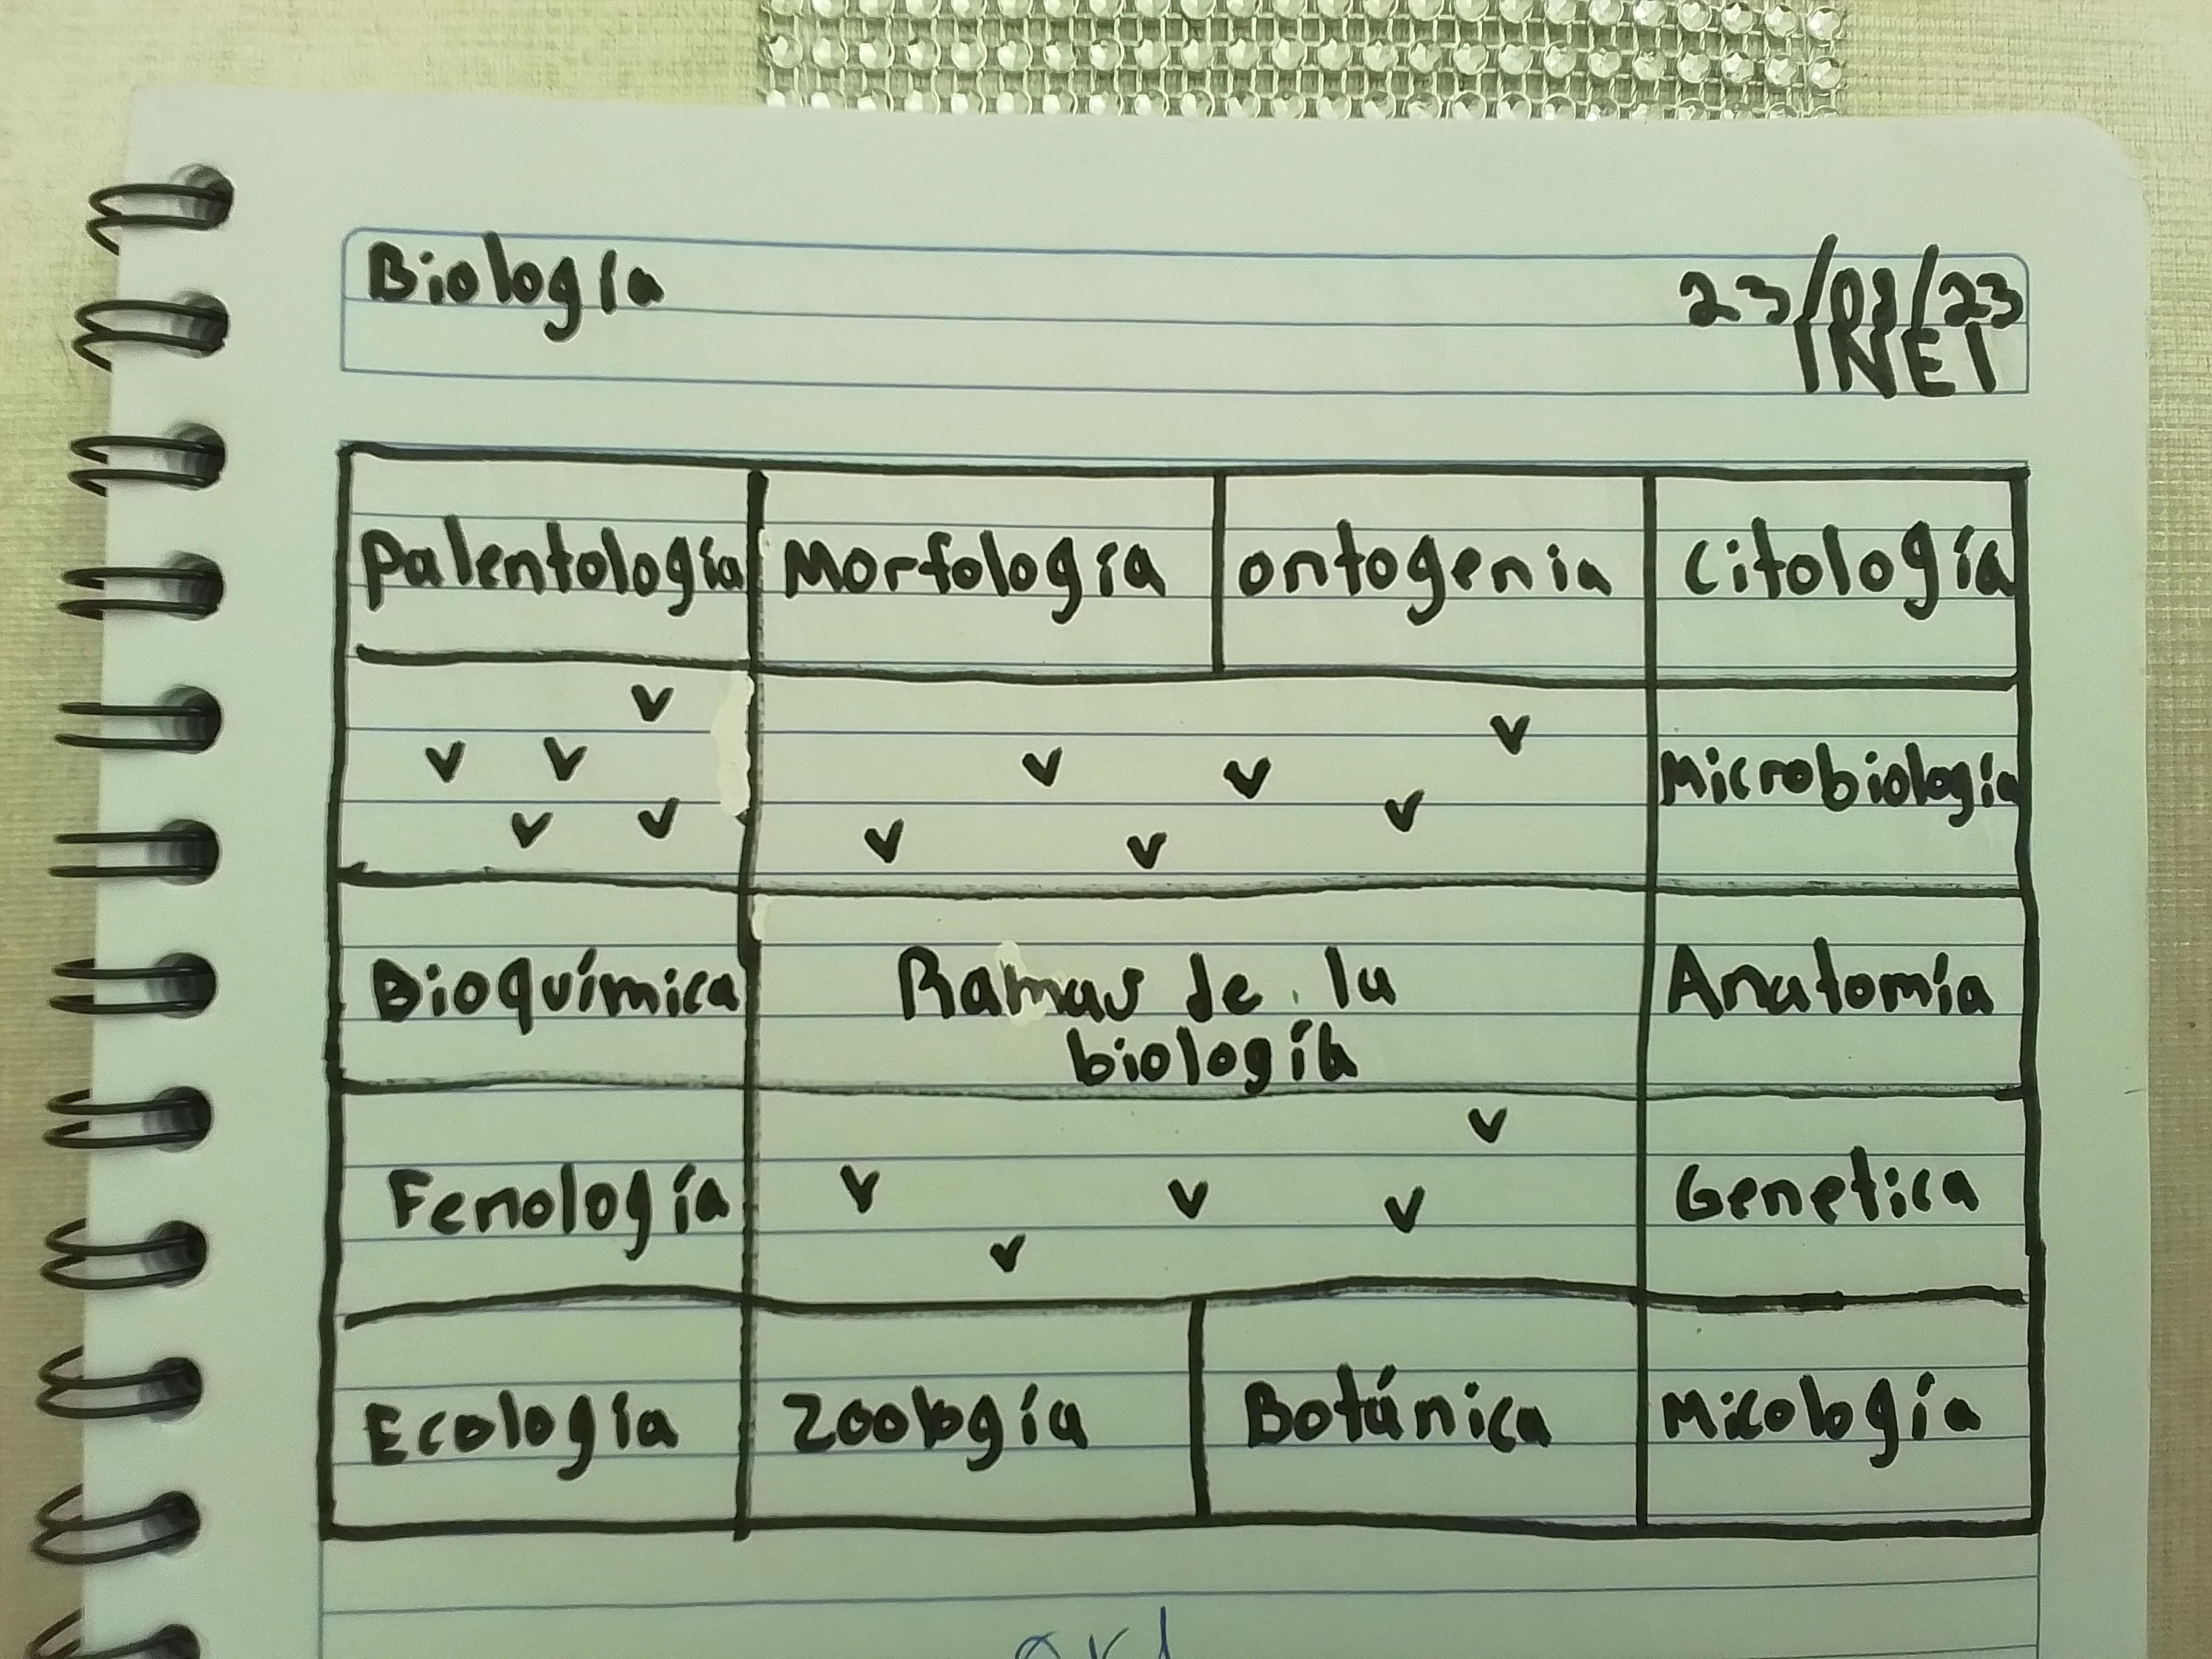 Biología
23/08/23
INEI
Palentología Morfología ontogenia Citología
v
v v v v v Microbiología
v v v v v
Bioquímica Ramas de la Anatomía
biología
v
Fenología v v v Genetica
v
Ecología Zoología Botánica Micología